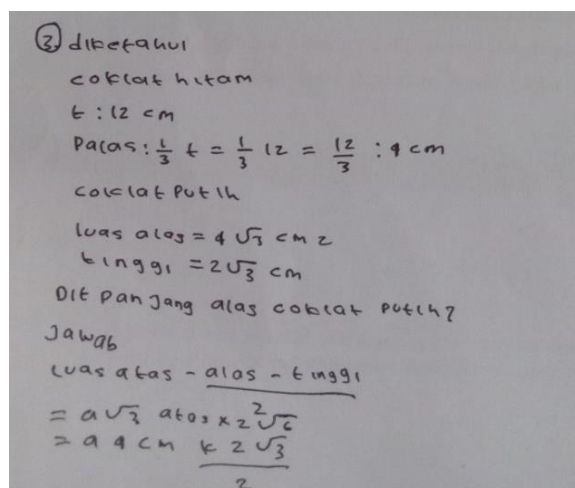 3. diketahui
coklat hitam
t : 12 cm
Palas : 1/3 t = 1/3 12 = 12/3 : 4 cm
coklat Putih
luas alas = 4 √3 cm 2
tinggi = 2√3 cm
Dit Panjang alas coklat putih?
Jawab
luas alas - alas - tinggi
= a √3 alas x 2 √
= a 4 cm x 2 √3
2